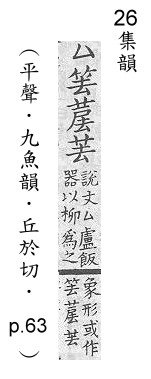 26
集韻
厶
說文厶盧飯
器以柳為之
象形或作
（平聲．九魚韻．丘於切．
p.63
）